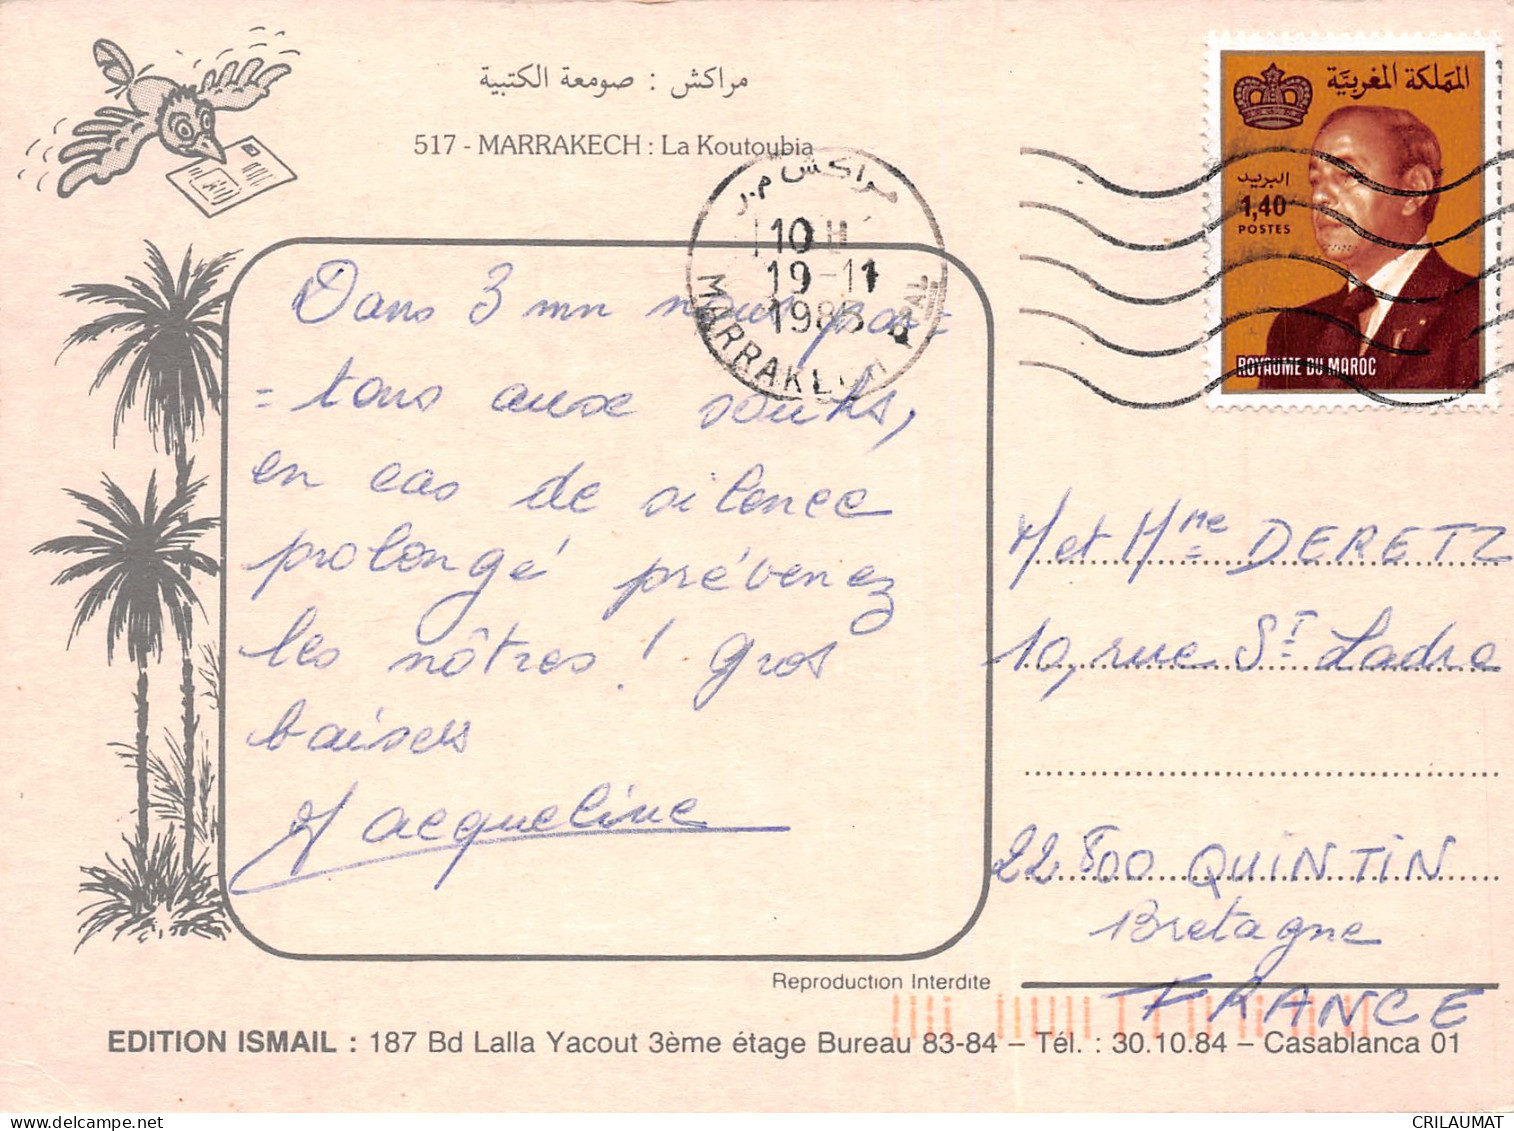 مراكش : صومعة الكتبية
517 - MARRAKECH : La Koutoubia
المملكة المغربية
البريد
1,40
POSTES
ROYAUME DU MAROC
مراكش م.ر
10 H
19-11
1986
MARRAKECH PAL
Dans 3 mn nous par=
=tons aux souks,
en cas de silence
prolongé prévenez
les nôtres ! Gros
baisers
Jacqueline
M et Mme DERETZ
10, rue St Ladre
22 800 QUINTIN
Bretagne
FRANCE
Reproduction Interdite
EDITION ISMAIL : 187 Bd Lalla Yacout 3ème étage Bureau 83-84 – Tél. : 30.10.84 – Casablanca 01
CRILAUMAT